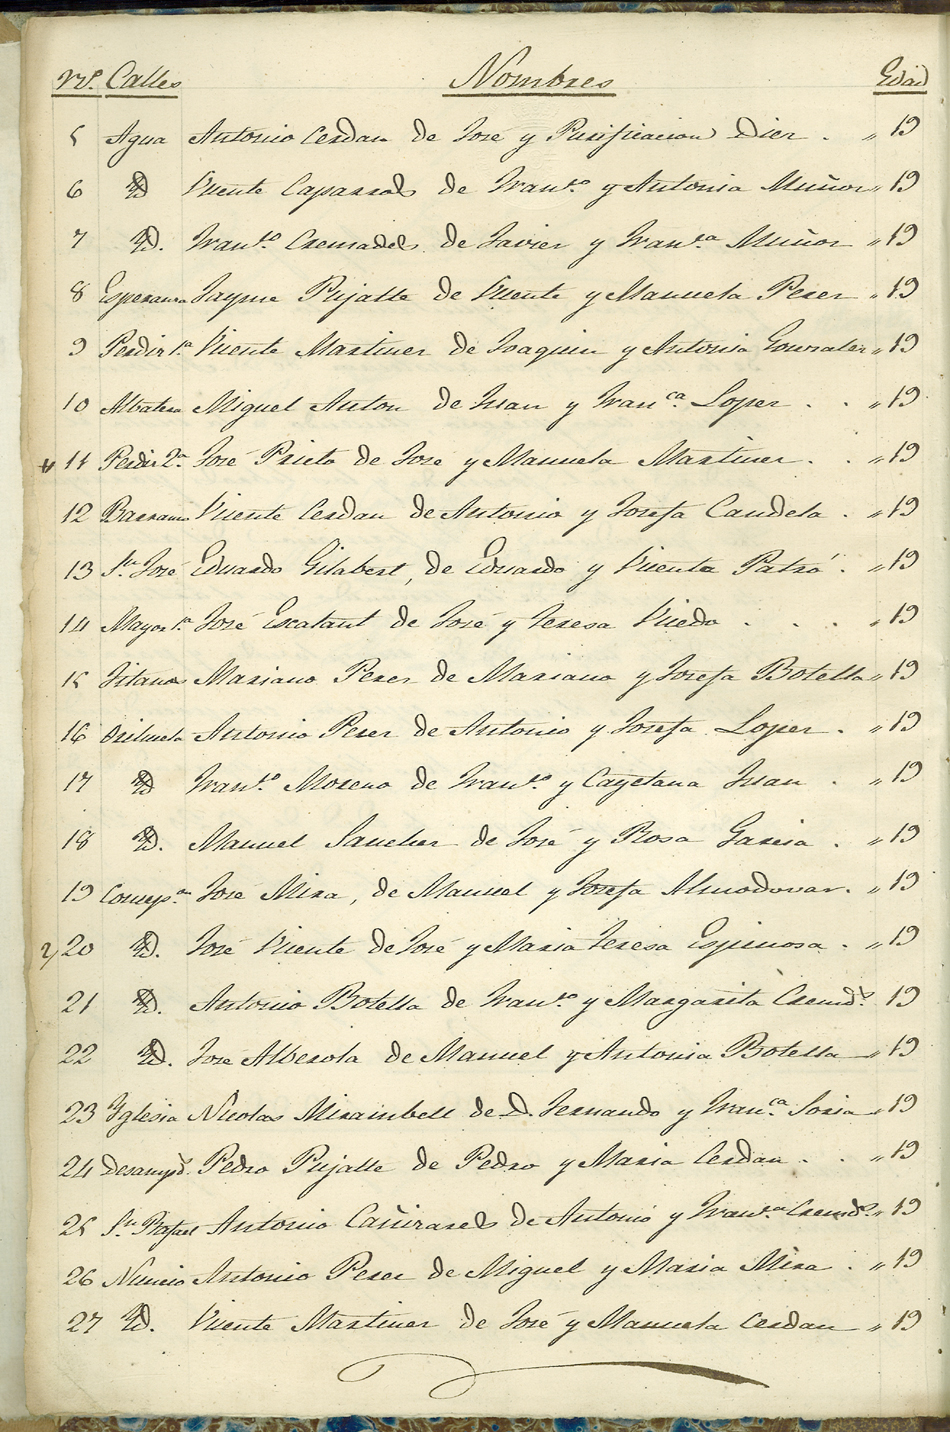 Nº. Calles Nombres Edad
5 Agua Antonio Cerdan de José y Purificacion Diez . „ 19
6 Yd Vicente Caparros de Franco. y Antonia Muñoz „ 19
7 Yd. Franco. Cremades de Javier y Franca. Muñoz „ 19
8 Esperanza Jayme Pujalte de Vicente y Manuela Perez „ 19
9 Perdiz 1a. Vicente Martinez de Joaquin y Antonia Gonzalez „ 19
10 Albatera Miguel Anton de Juan y Franca. Lopez . . „ 19
11 Perdiz 2a. José Prieto de Jose y Manuela Martinez . . „ 19
12 Barranco Vicente Cerdan de Antonio y Josefa Candela . „ 19
13 Sn. José Eduardo Gilabert, de Eduardo y Vicenta Patró . „ 19
14 Mayor 1a. José Escalant de José y Teresa Puedo . . . „ 19
15 Gitanos Mariano Perez de Mariano y Josefa Botella „ 19
16 Orihuela Antonio Perez de Antonio y Josefa Lopez . „ 19
17 Yd Franco. Moreno de Franco. y Cayetana Juan . „ 19
18 Yd. Manuel Sanchez de José y Rosa Garcia . „ 19
19 Concepon. Jose Mira, de Manuel y Josefa Almodovar. „ 19
20 Yd. José Vicente de José y Maria Teresa Espinosa . „ 19
21 Yd. Antonio Botella de Franco. y Margarita Cremds. 19
22 Yd. José Alberola de Manuel y Antonia Botella „ 19
23 Yglesia Nicolas Mirambell de D. Fernando y Franca. Soria „ 19
24 Desampds. Pedro Pujalte de Pedro y Maria Cerdan . . „ 19
25 Sn. Rafael Antonio Cañizares de Antonio y Franca. Cremds. „ 19
26 Nuncio Antonio Perez de Miguel y Maria Mira . „ 19
27 Yd. Vicente Martinez de José y Manuela Cerdan „ 19